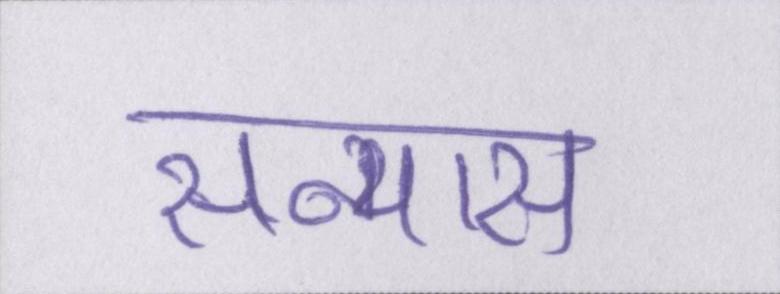 सन्यास